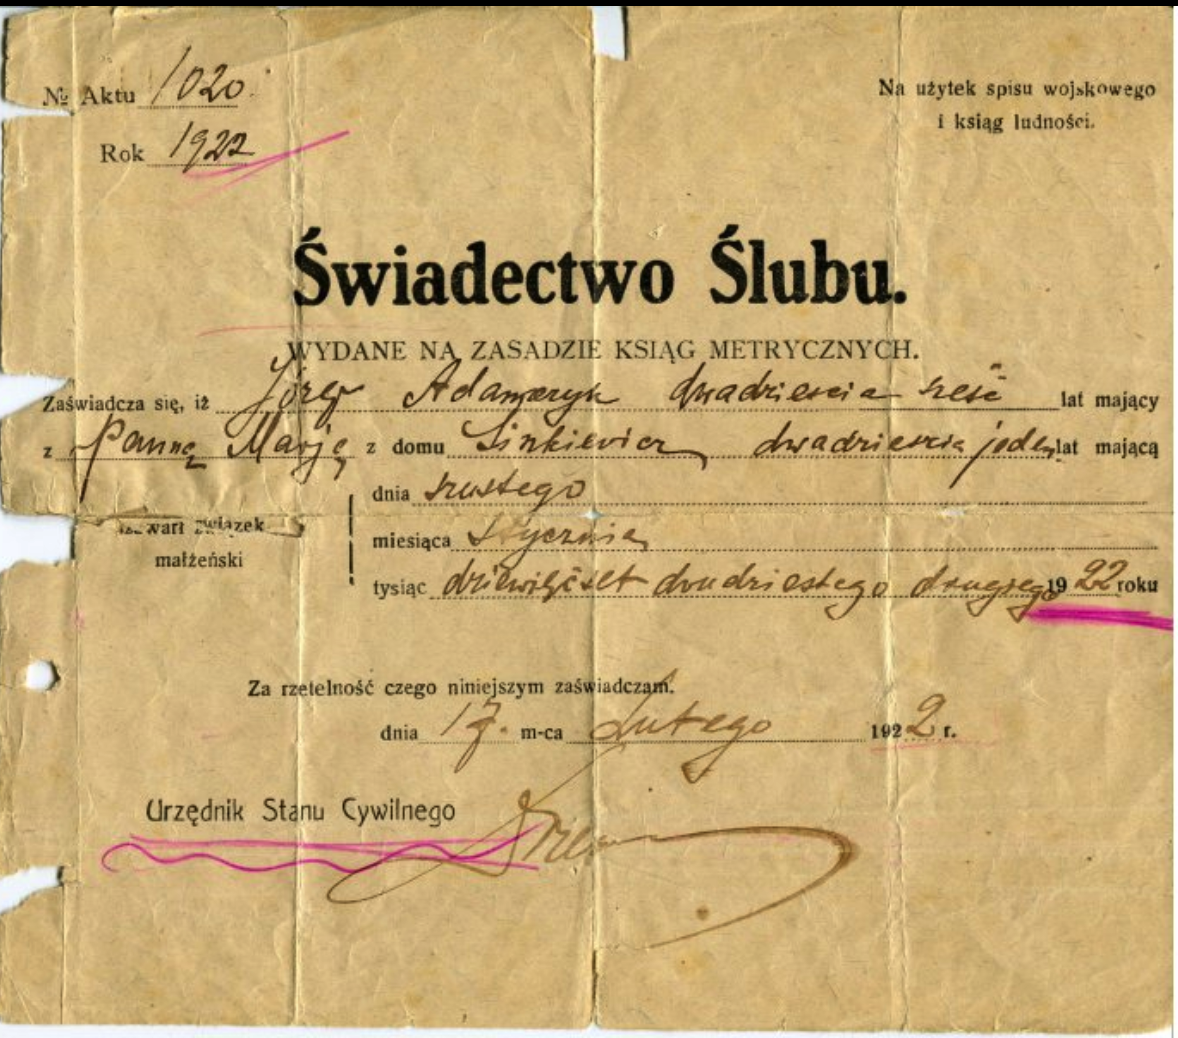 № Aktu 1020.
Na użytek spisu wojskowego
i ksiąg ludności.
Rok 1922
Świadectwo Ślubu.
WYDANE NA ZASADZIE KSIĄG METRYCZNYCH.
Zaświadcza się, iż Józef Adamczyk dwadzieścia sześć lat mający
z Panną Marją z domu Sinkiewicz dwadzieścia jeden lat mającą
dnia szustego
zawarł związek
małżeński
miesiąca Stycznia
tysiąc dziewięćset dwudziestego drugiego 1922 roku
Za rzetelność czego niniejszym zaświadczam.
dnia 17. m-ca Lutego 1922 r.
Urzędnik Stanu Cywilnego